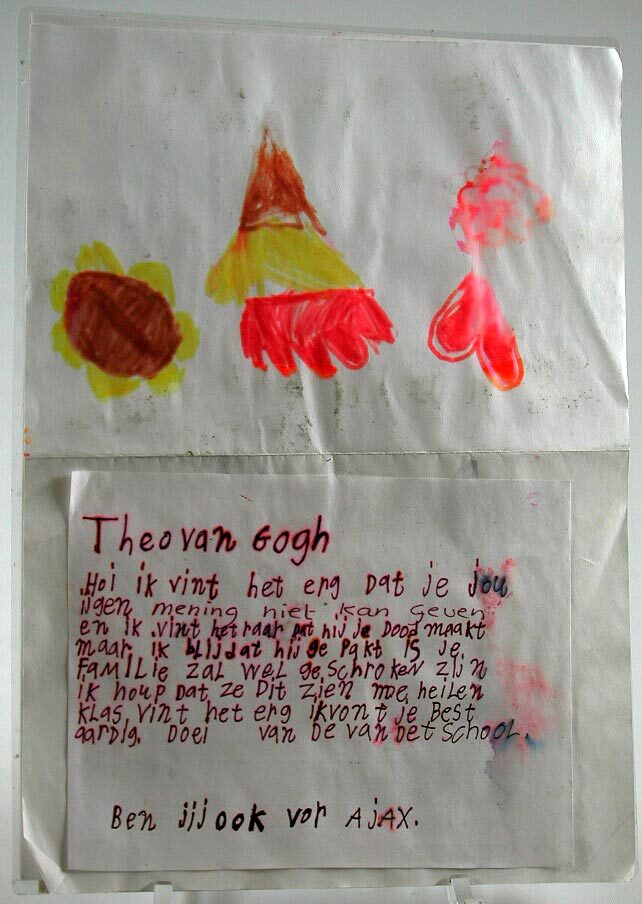 Theo van Gogh
Hoi ik vint het erg Dat je jou
iigen mening niet kan geven
en ik vint het raar Dat hij je Dood maakt
maar ik blij dat hij ge Pakt is je
FAMiLie zal wel ge schroken zijn
ik houp Dat ze Dit zien mne heilen
klas vint het erg ik vont je Best
aardig. Doei van De van Det School.
Ben jij ook vor AjAX.